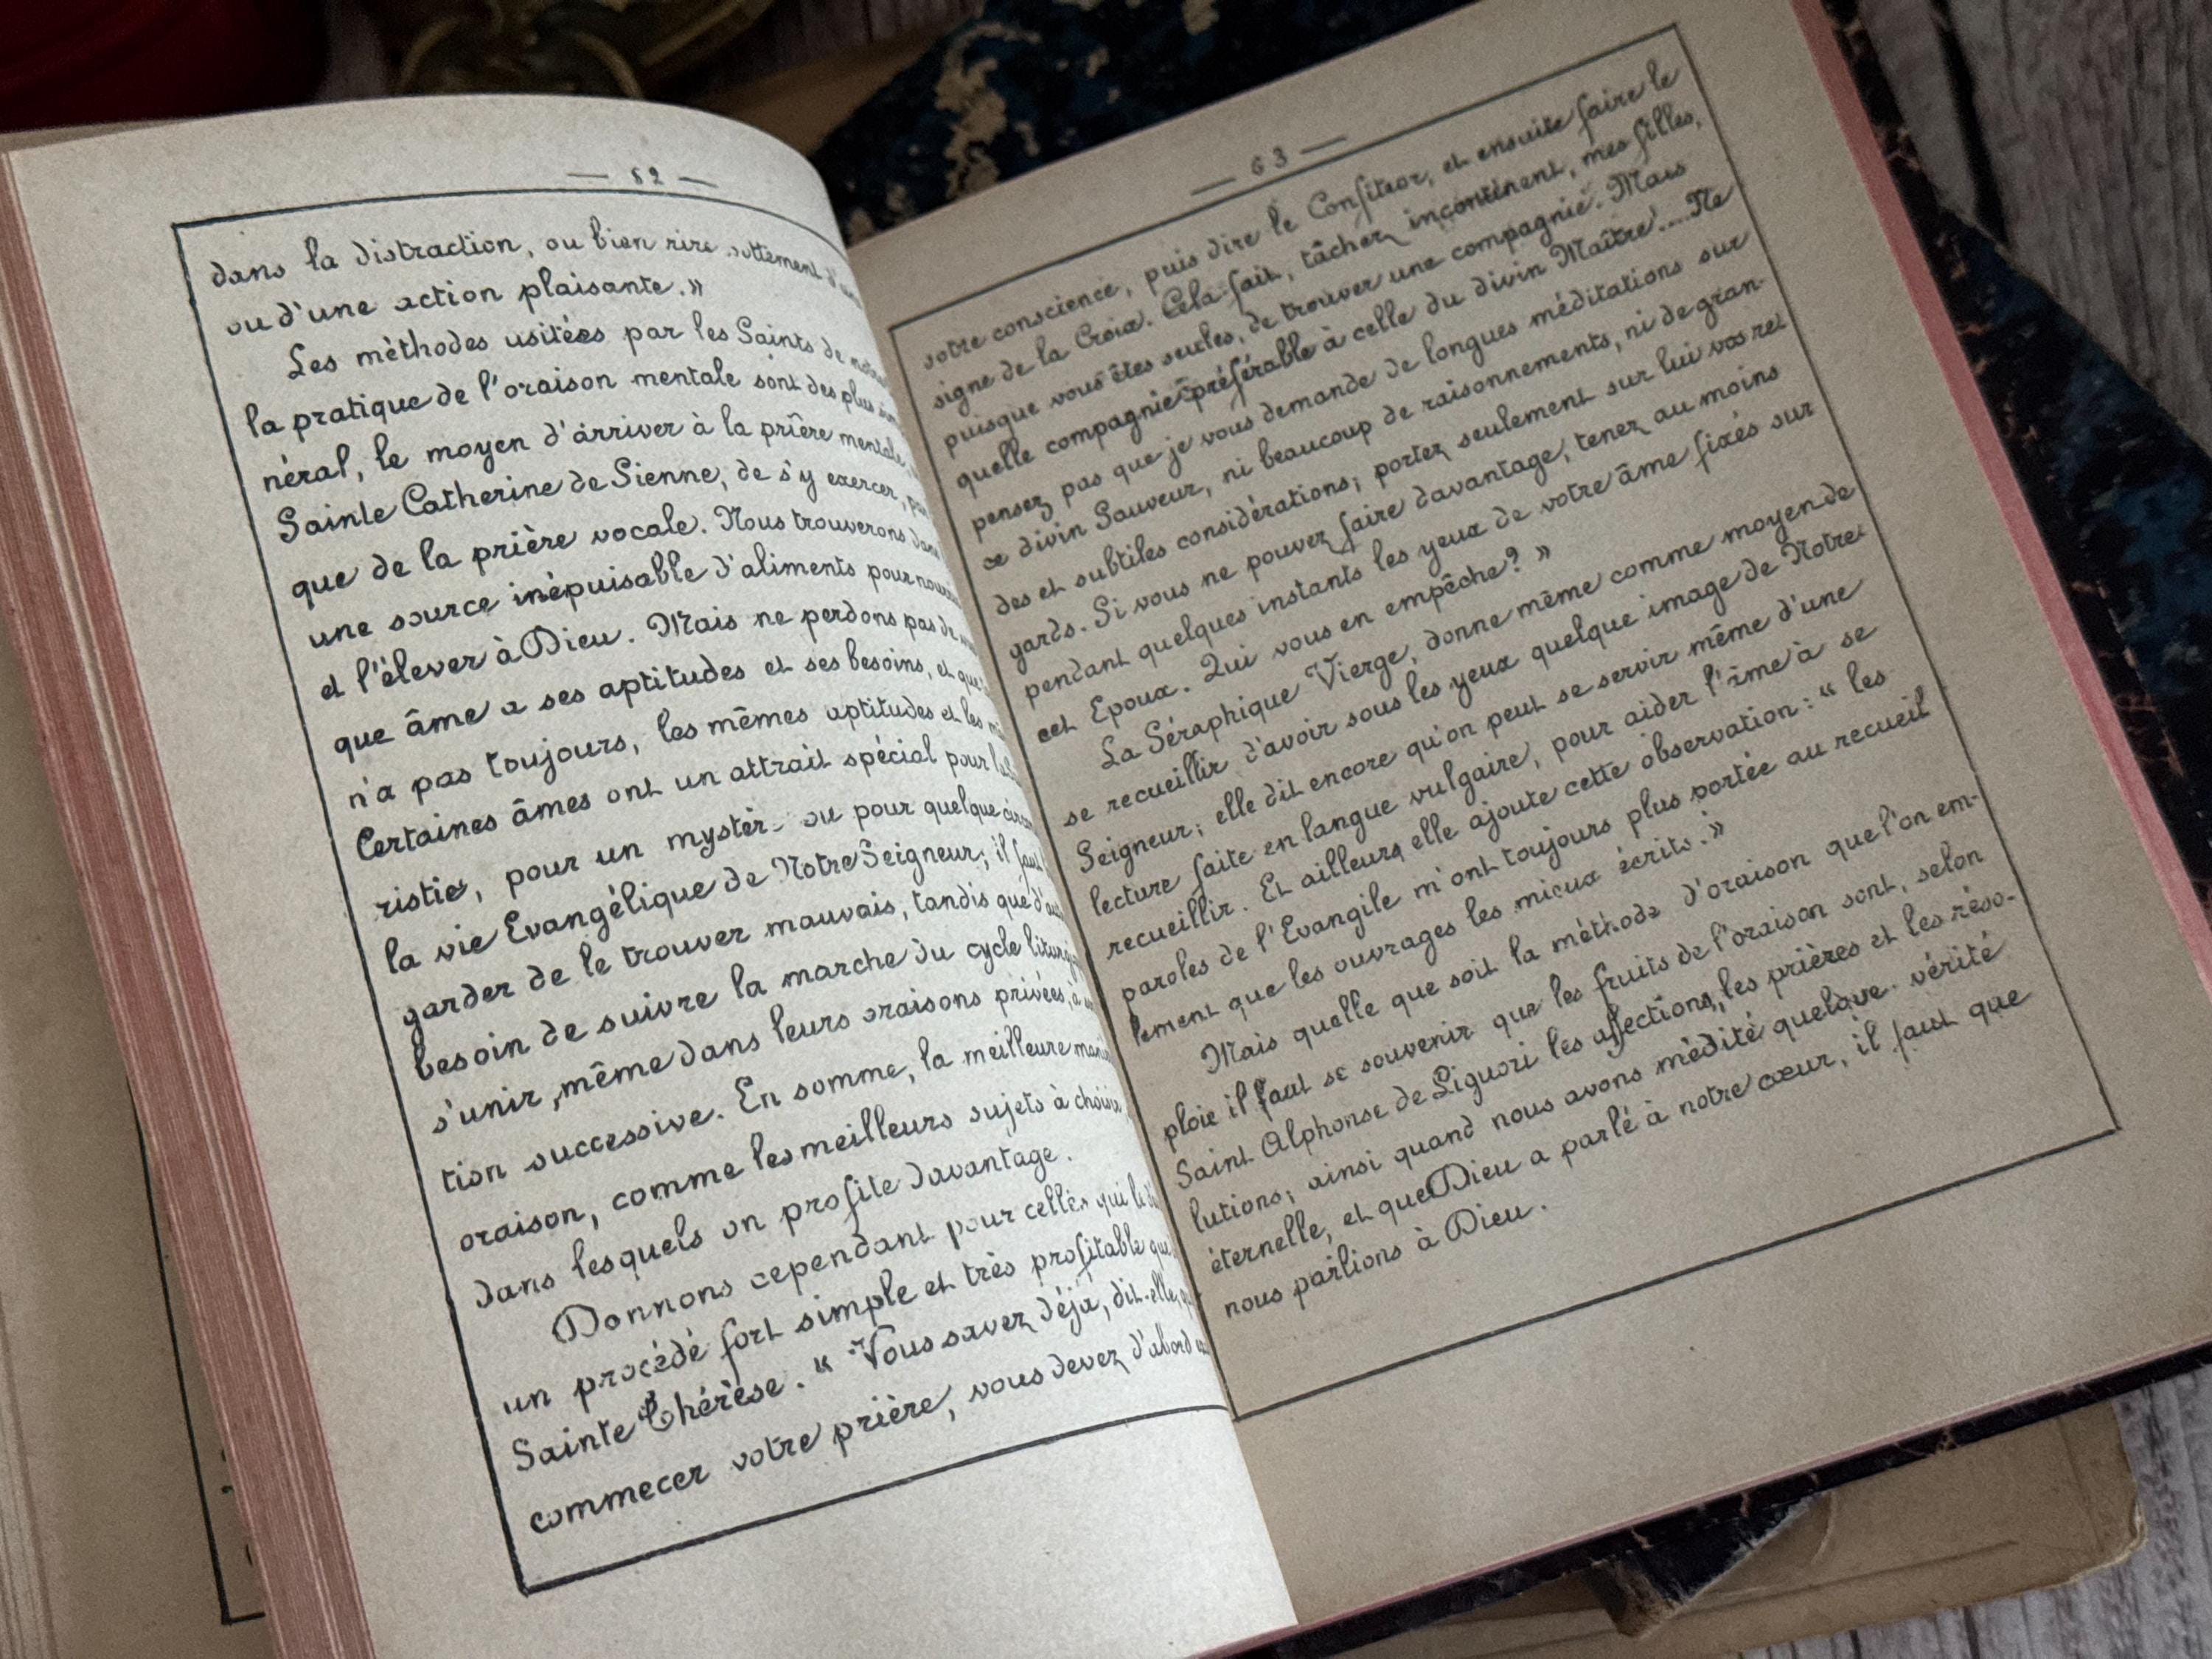 — 62 —
dans la distraction, ou bien rire sottement
ou d'une action plaisante. »
Les méthodes usitées par les Saints de
la pratique de l'oraison mentale sont des plus
néral, le moyen d'arriver à la prière mentale
Sainte Catherine de Sienne, de s'y exercer,
que de la prière vocale. Nous trouverons dans
une source inépuisable d'aliments pour
et l'élever à Dieu. Mais ne perdons pas de
que âme a ses aptitudes et ses besoins, et
n'a pas toujours, les mêmes aptitudes et les
Certaines âmes ont un attrait spécial pour
ristie, pour un mystère ou pour quelque
la vie Evangélique de Notre Seigneur; il faut
garder de le trouver mauvais, tandis que
besoin de suivre la marche du cycle
s'unir, même dans leurs oraisons privées, à
tion successive. En somme, la meilleure
oraison, comme les meilleurs sujets à choisir
dans lesquels on profite davantage.
Donnons cependant pour celles qui le
un procédé fort simple et très profitable
Sainte Thérèse. « Vous savez déjà, dit-elle,
commecer votre prière, vous devez d'abord
— 63 —
votre conscience, puis dire le Confiteor, et ensuite faire le
signe de la Croix. Cela fait, tâchez incontinent, mes filles,
puisque vous êtes seules, de trouver une compagnie. Mais
quelle compagnie préférable à celle du divin Maître!.... Ne
pensez pas que je vous demande de longues méditations sur
ce divin Sauveur, ni beaucoup de raisonnements, ni de gran-
des et subtiles considérations; portez seulement sur lui vos re
gards. Si vous ne pouvez faire davantage, tenez au moins
pendant quelques instants les yeux de votre âme fixés sur
cet Epoux. Qui vous en empêche? »
La Séraphique Vierge, donne même comme moyen de
se recueillir d'avoir sous les yeux quelque image de Notre
Seigneur; elle dit encore qu'on peut se servir même d'une
lecture faite en langue vulgaire, pour aider l'âme à se
recueillir. Et ailleurs elle ajoute cette observation: « les
paroles de l'Evangile m'ont toujours plus portée au recueil
lement que les ouvrages les mieux écrits. »
Mais quelle que soit la méthode d'oraison que l'on em-
ploie il faut se souvenir que les fruits de l'oraison sont, selon
Saint Alphonse de Liguori les affections, les prières et les réso-
lutions; ainsi quand nous avons médité quelque vérité
éternelle, et que Dieu a parlé à notre cœur, il faut que
nous parlions à Dieu.